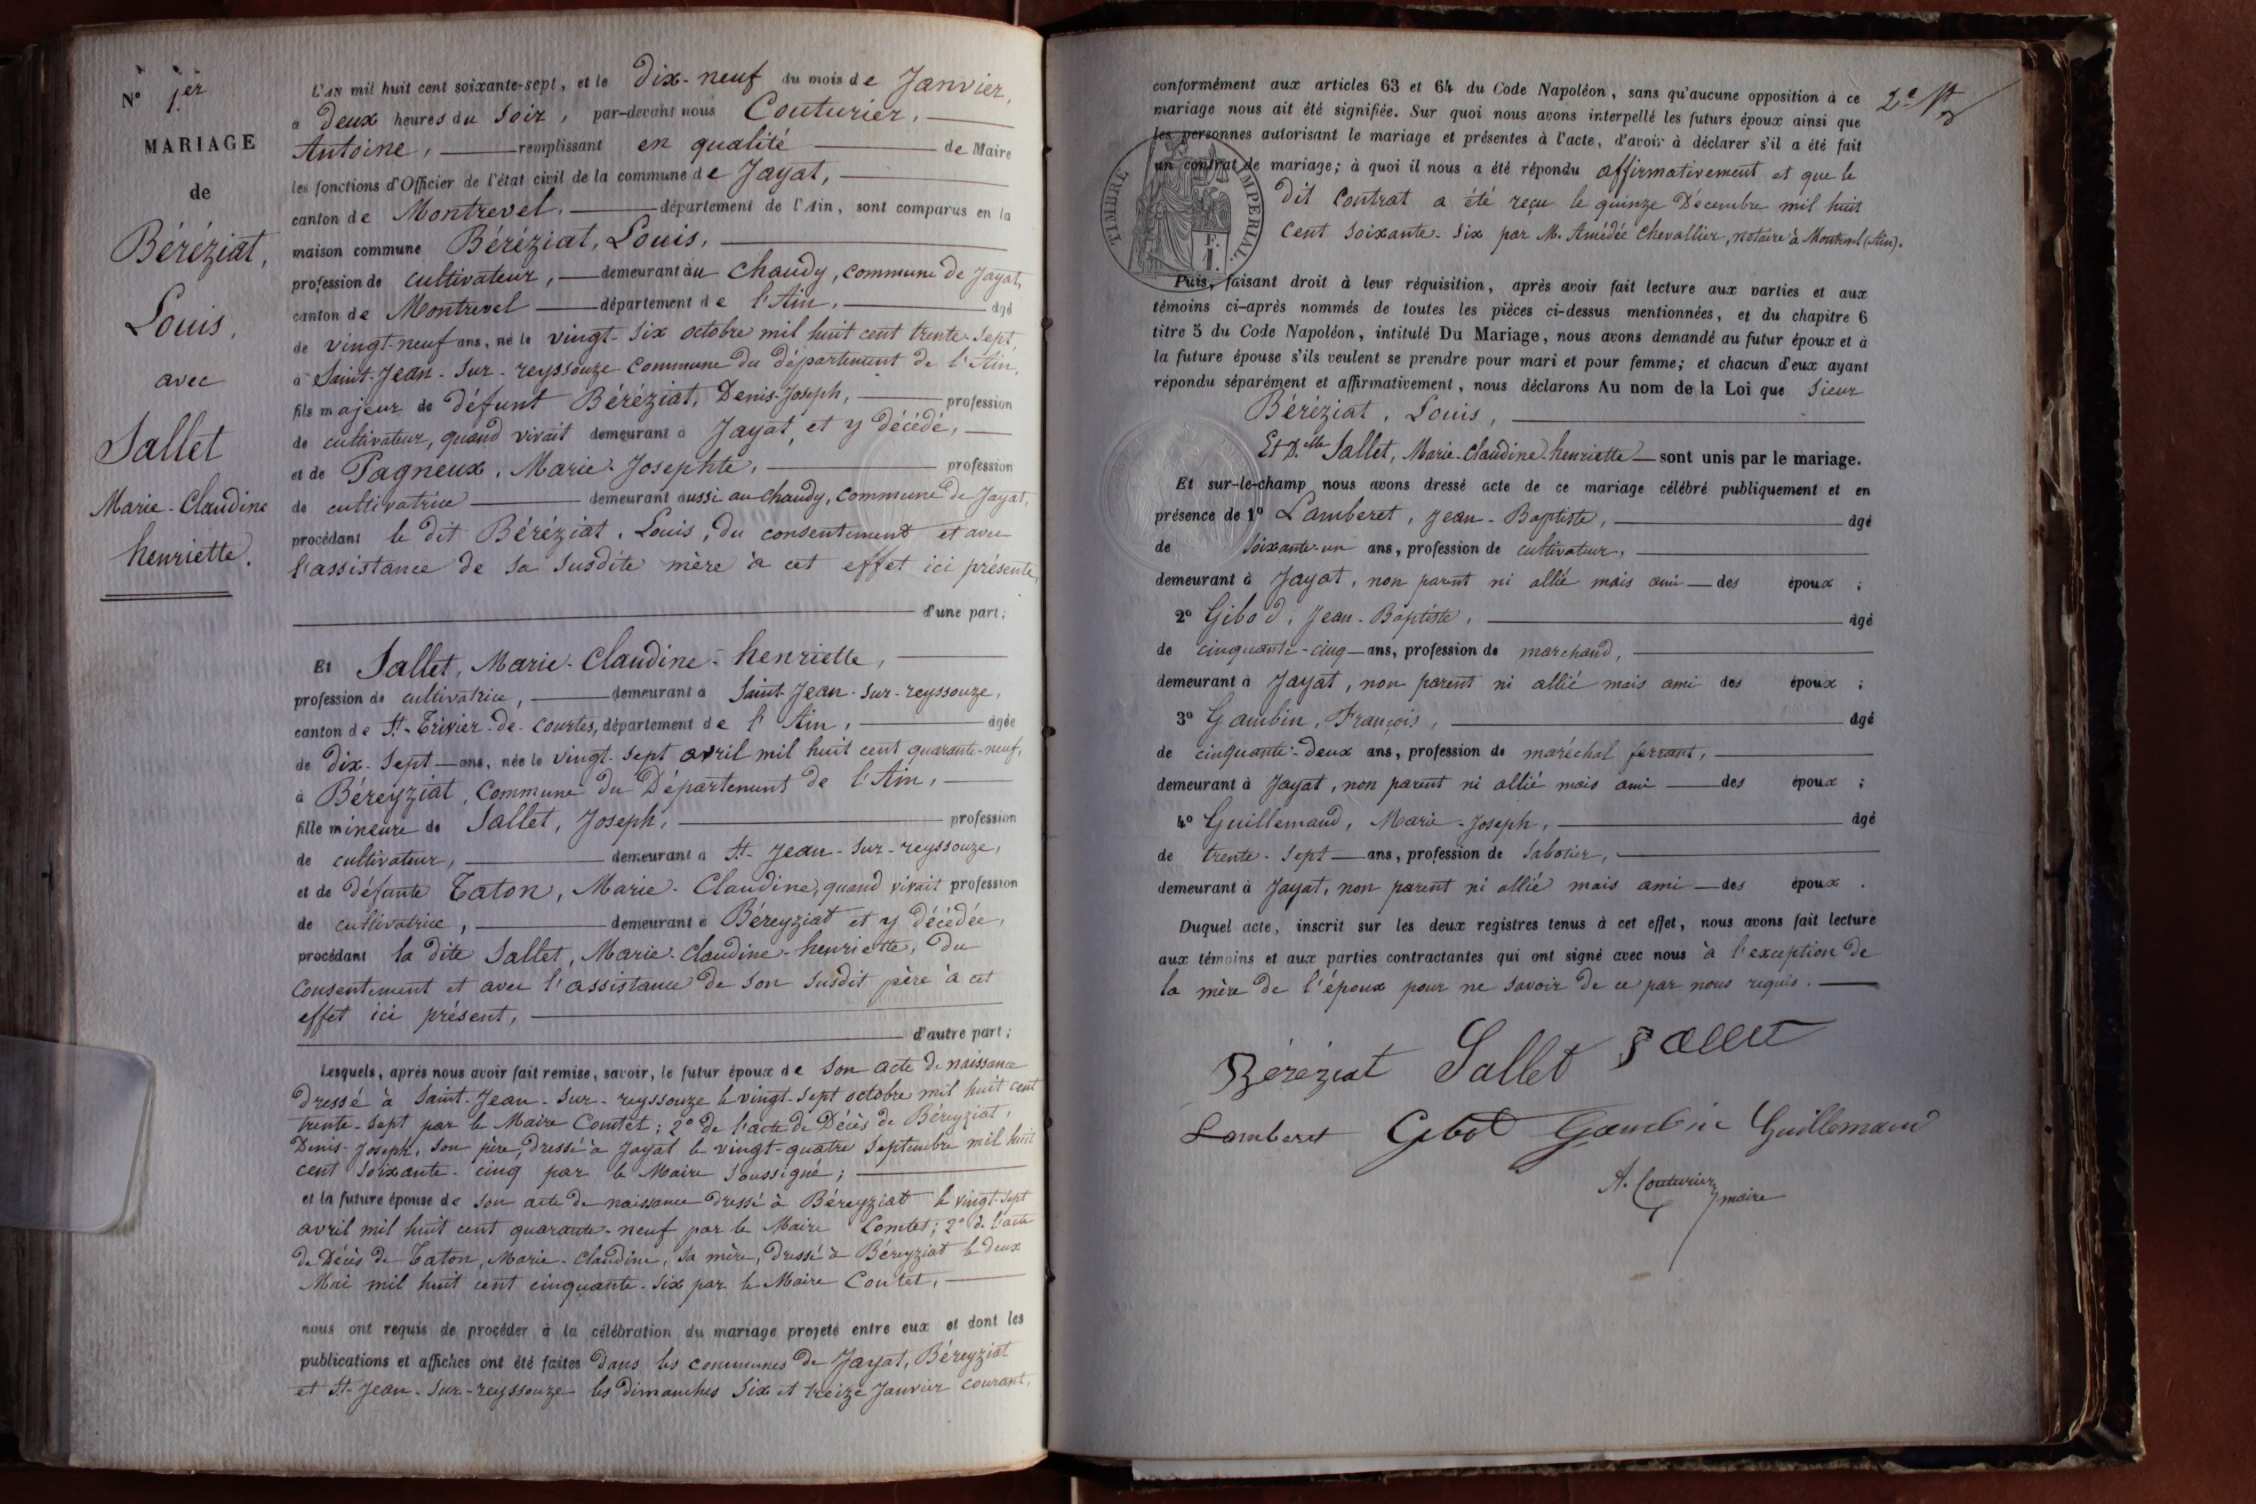 N° 1er
MARIAGE
de
Béréziat,
Louis,
avec
Sallet
Marie-Claudine
henriette.
L'AN mil huit cent soixante-sept, et le dix-neuf du mois de Janvier,
a deux heures du soir, par-devant nous Couturier,
Antoine, remplissant en qualité de Maire
les fonctions d'Officier de l'état civil de la commune de Jayat,
canton de Montrevel, département de l'Ain, sont comparus en la
maison commune Béréziat, Louis,
profession de cultivateur, demeurant au Chaudy, commune de Jayat,
canton de Montrevel département de l'Ain, âgé
de vingt-neuf ans, né le vingt-six octobre mil huit cent trente-sept
à Saint-Jean-sur-reyssouze commune du département de l'Ain,
fils majeur de défunt Béréziat, Denis-Joseph, profession
de cultivateur, quand vivait demeurant à Jayat, et y décédé,
et de Pagneux, Marie-Josephte, profession
de cultivatrice demeurant aussi au chaudy, commune de Jayat,
procédant le dit Béréziat, Louis, du consentement et avec
l'assistance de sa susdite mère à cet effet ici présente,
d'une part;
Et Sallet, Marie-Claudine-henriette,
profession de cultivatrice, demeurant à Saint-Jean-sur-reyssouze,
canton de St-Trivier-de-Courtes, département de l'Ain, âgée
de dix-sept ans, née le vingt-sept avril mil huit cent quarante-neuf,
à Béreyziat, Commune du Département de l'Ain,
fille mineure de Sallet, Joseph, profession
de cultivateur, demeurant à St-Jean-sur-reyssouze,
et de défunte Taton, Marie-Claudine, quand vivait profession
de cultivatrice, demeurant à Béreyziat et y décédée,
procédant la dite Sallet, Marie-Claudine-henriette, du
consentement et avec l'assistance de son susdit père à cet
effet ici présent,
d'autre part;
Lesquels, après nous avoir fait remise, savoir, le futur époux de son acte de naissance
dressé à Saint-Jean-sur-reyssouze le vingt-sept octobre mil huit cent
trente-sept par le Maire Comtet; 2° de l'acte de Décès de Béreyziat,
Denis-Joseph, son père, dressé à Jayat le vingt-quatre septembre mil huit
cent soixante-cinq par le Maire soussigné;
et la future épouse de son acte de naissance dressé à Béreyziat le vingt-sept
avril mil huit cent quarante-neuf par le Maire Comtet; 2° de l'acte
de Décès de Taton, Marie-Claudine, sa mère, dressé à Béreyziat le deux
Mai mil huit cent cinquante-six par le Maire Contet,
nous ont requis de procéder à la célébration du mariage projeté entre eux et dont les
publications et affiches ont été faites dans les communes de Jayat, Béreyziat
et St-Jean-sur-reyssouze les dimanches six et treize Janvier courant,
conformément aux articles 63 et 64 du Code Napoléon, sans qu'aucune opposition à ce
mariage nous ait été signifiée. Sur quoi nous avons interpellé les futurs époux ainsi que
les personnes autorisant le mariage et présentes à l'acte, d'avoir à déclarer s'il a été fait
un contrat de mariage; à quoi il nous a été répondu affirmativement et que le
dit contrat a été reçu le quinze Décembre mil huit
cent soixante-six par M. Amédée Chevallier, notaire à Montrevel (Ain).
TIMBRE IMPÉRIAL
F.
1.
Puis, faisant droit à leur réquisition, après avoir fait lecture aux parties et aux
témoins ci-après nommés de toutes les pièces ci-dessus mentionnées, et du chapitre 6
titre 5 du Code Napoléon, intitulé Du Mariage, nous avons demandé au futur époux et à
la future épouse s'ils veulent se prendre pour mari et pour femme; et chacun d'eux ayant
répondu séparément et affirmativement, nous déclarons Au nom de la Loi que Sieur
Béréziat, Louis,
Et D.elle Sallet, Marie-Claudine-henriette sont unis par le mariage.
Et sur-le-champ nous avons dressé acte de ce mariage célébré publiquement et en
présence de 1° Lamberet, Jean-Baptiste, âgé
de soixante-un ans, profession de cultivateur,
demeurant à Jayat, non parent ni allié mais ami des époux ;
2° Gibod, Jean-Baptiste, âgé
de cinquante-cinq ans, profession de marchand,
demeurant à Jayat, non parent ni allié mais ami des époux ;
3° Gambin, François, âgé
de cinquante-deux ans, profession de maréchal ferrant,
demeurant à Jayat, non parent ni allié mais ami des époux ;
4° Guillemaud, Marie-Joseph, âgé
de trente-sept ans, profession de sabotier,
demeurant à Jayat, non parent ni allié mais ami des époux .
Duquel acte, inscrit sur les deux registres tenus à cet effet, nous avons fait lecture
aux témoins et aux parties contractantes qui ont signé avec nous à l'exception de
la mère de l'époux pour ne savoir de ce par nous requis.
Béréziat Sallet Sallet
Lamberet Gibod Gambin Guillemaud
A. Couturier
maire